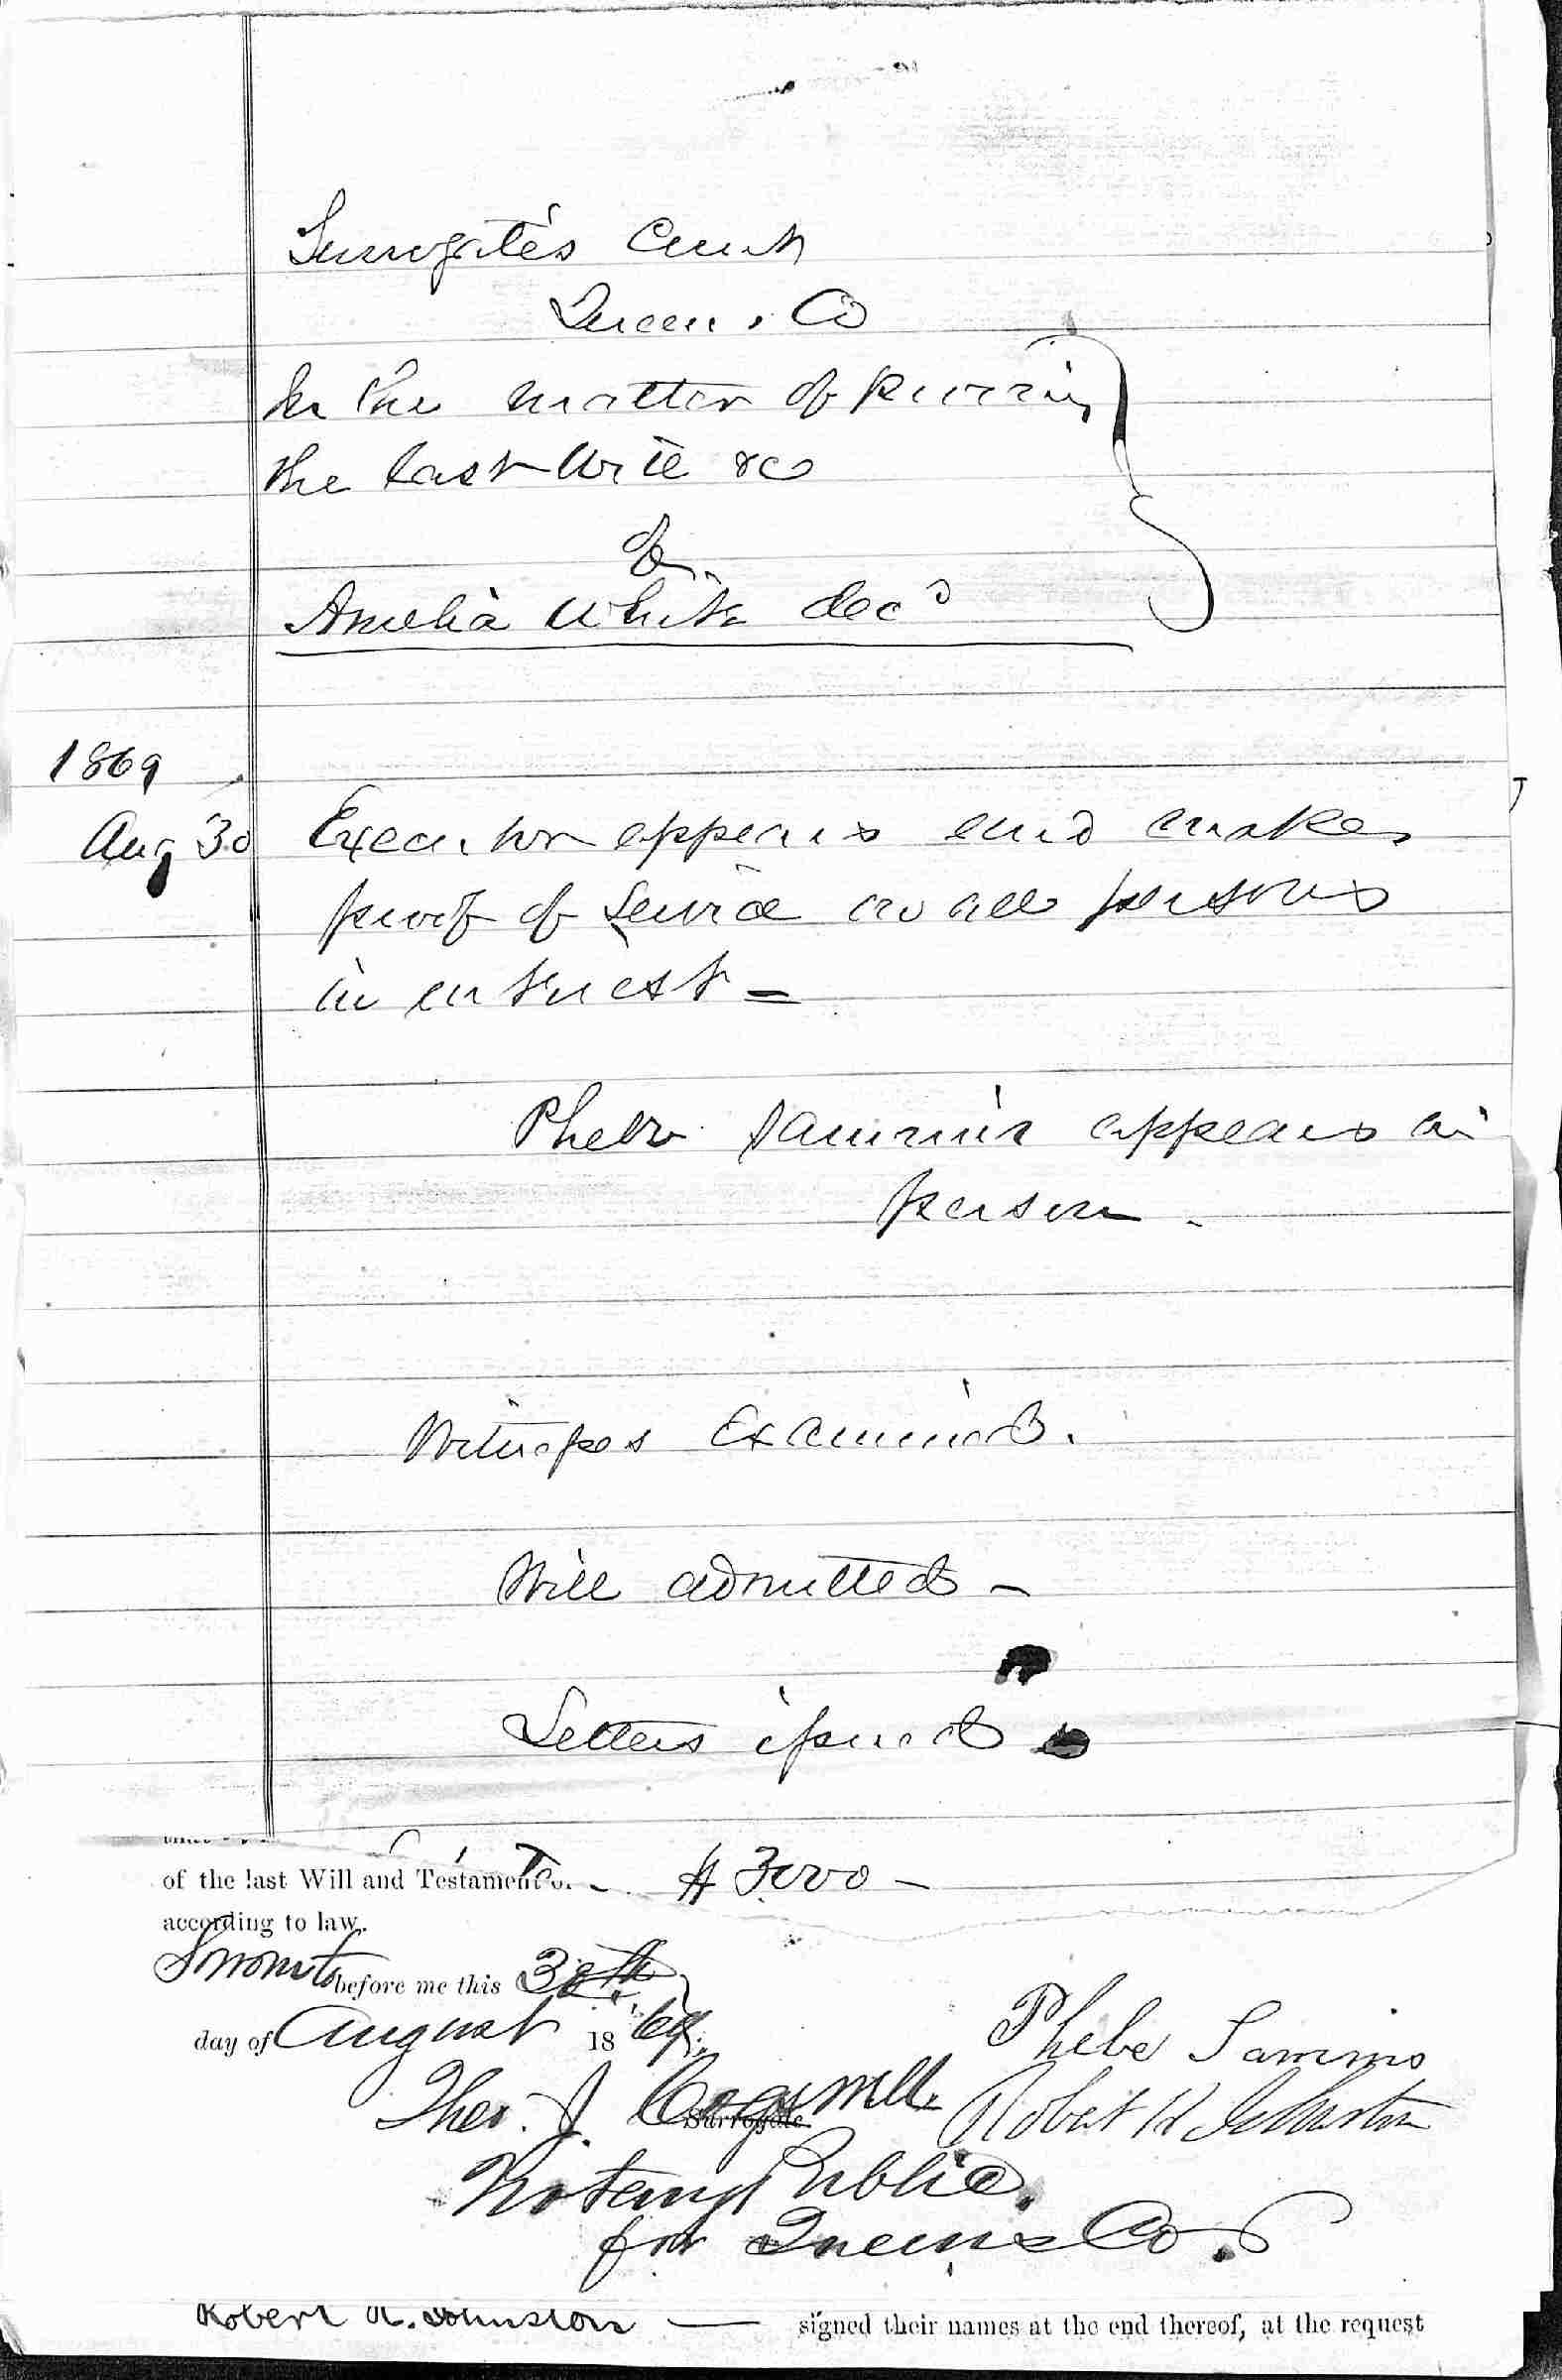 Surrogate's Court
Queens Co
In the matter of proving
the last Will &c
of
Amelia White decd
1869
Aug 30
Executor appears and makes
proof of service on all persons
in interest -
Phebe Sammis appears in
person.
Witnesses Examined.
Will admitted -
Letters issued
$3000 -
of the last Will and Testament
according to law.
Sworn to before me this 30th
day of August 1869.
Phebe Sammis
Theo. J. Cogswell
Surrogate
Robert H Johnston
Notary Public
for Queens Co.
Robert H. Johnston — signed their names at the end thereof, at the request